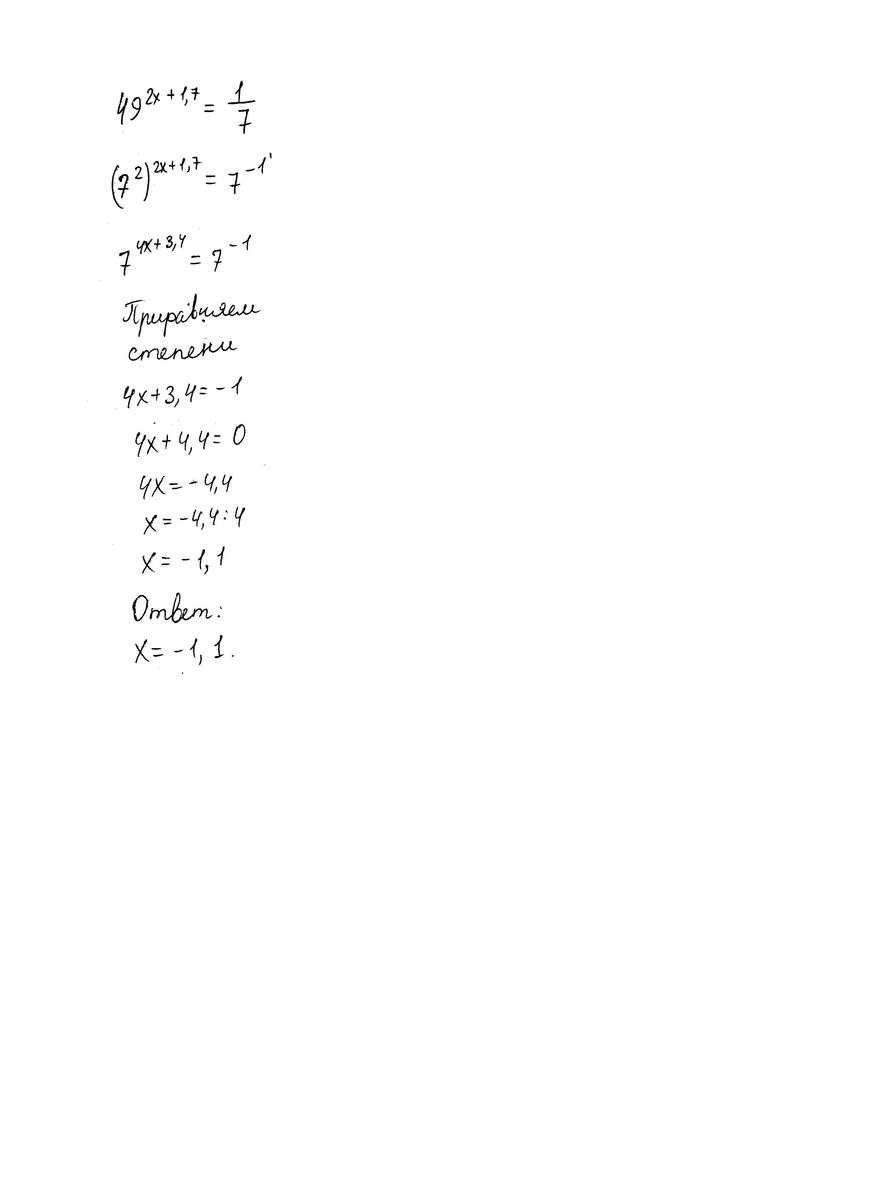 49^{2x+1,7} = \frac{1}{7}
(7^2)^{2x+1,7} = 7^{-1}
7^{4x+3,4} = 7^{-1}
Приравняем
степени
4x+3,4=-1
4x+4,4=0
4x=-4,4
x=-4,4:4
x=-1,1
Ответ:
x=-1,1.